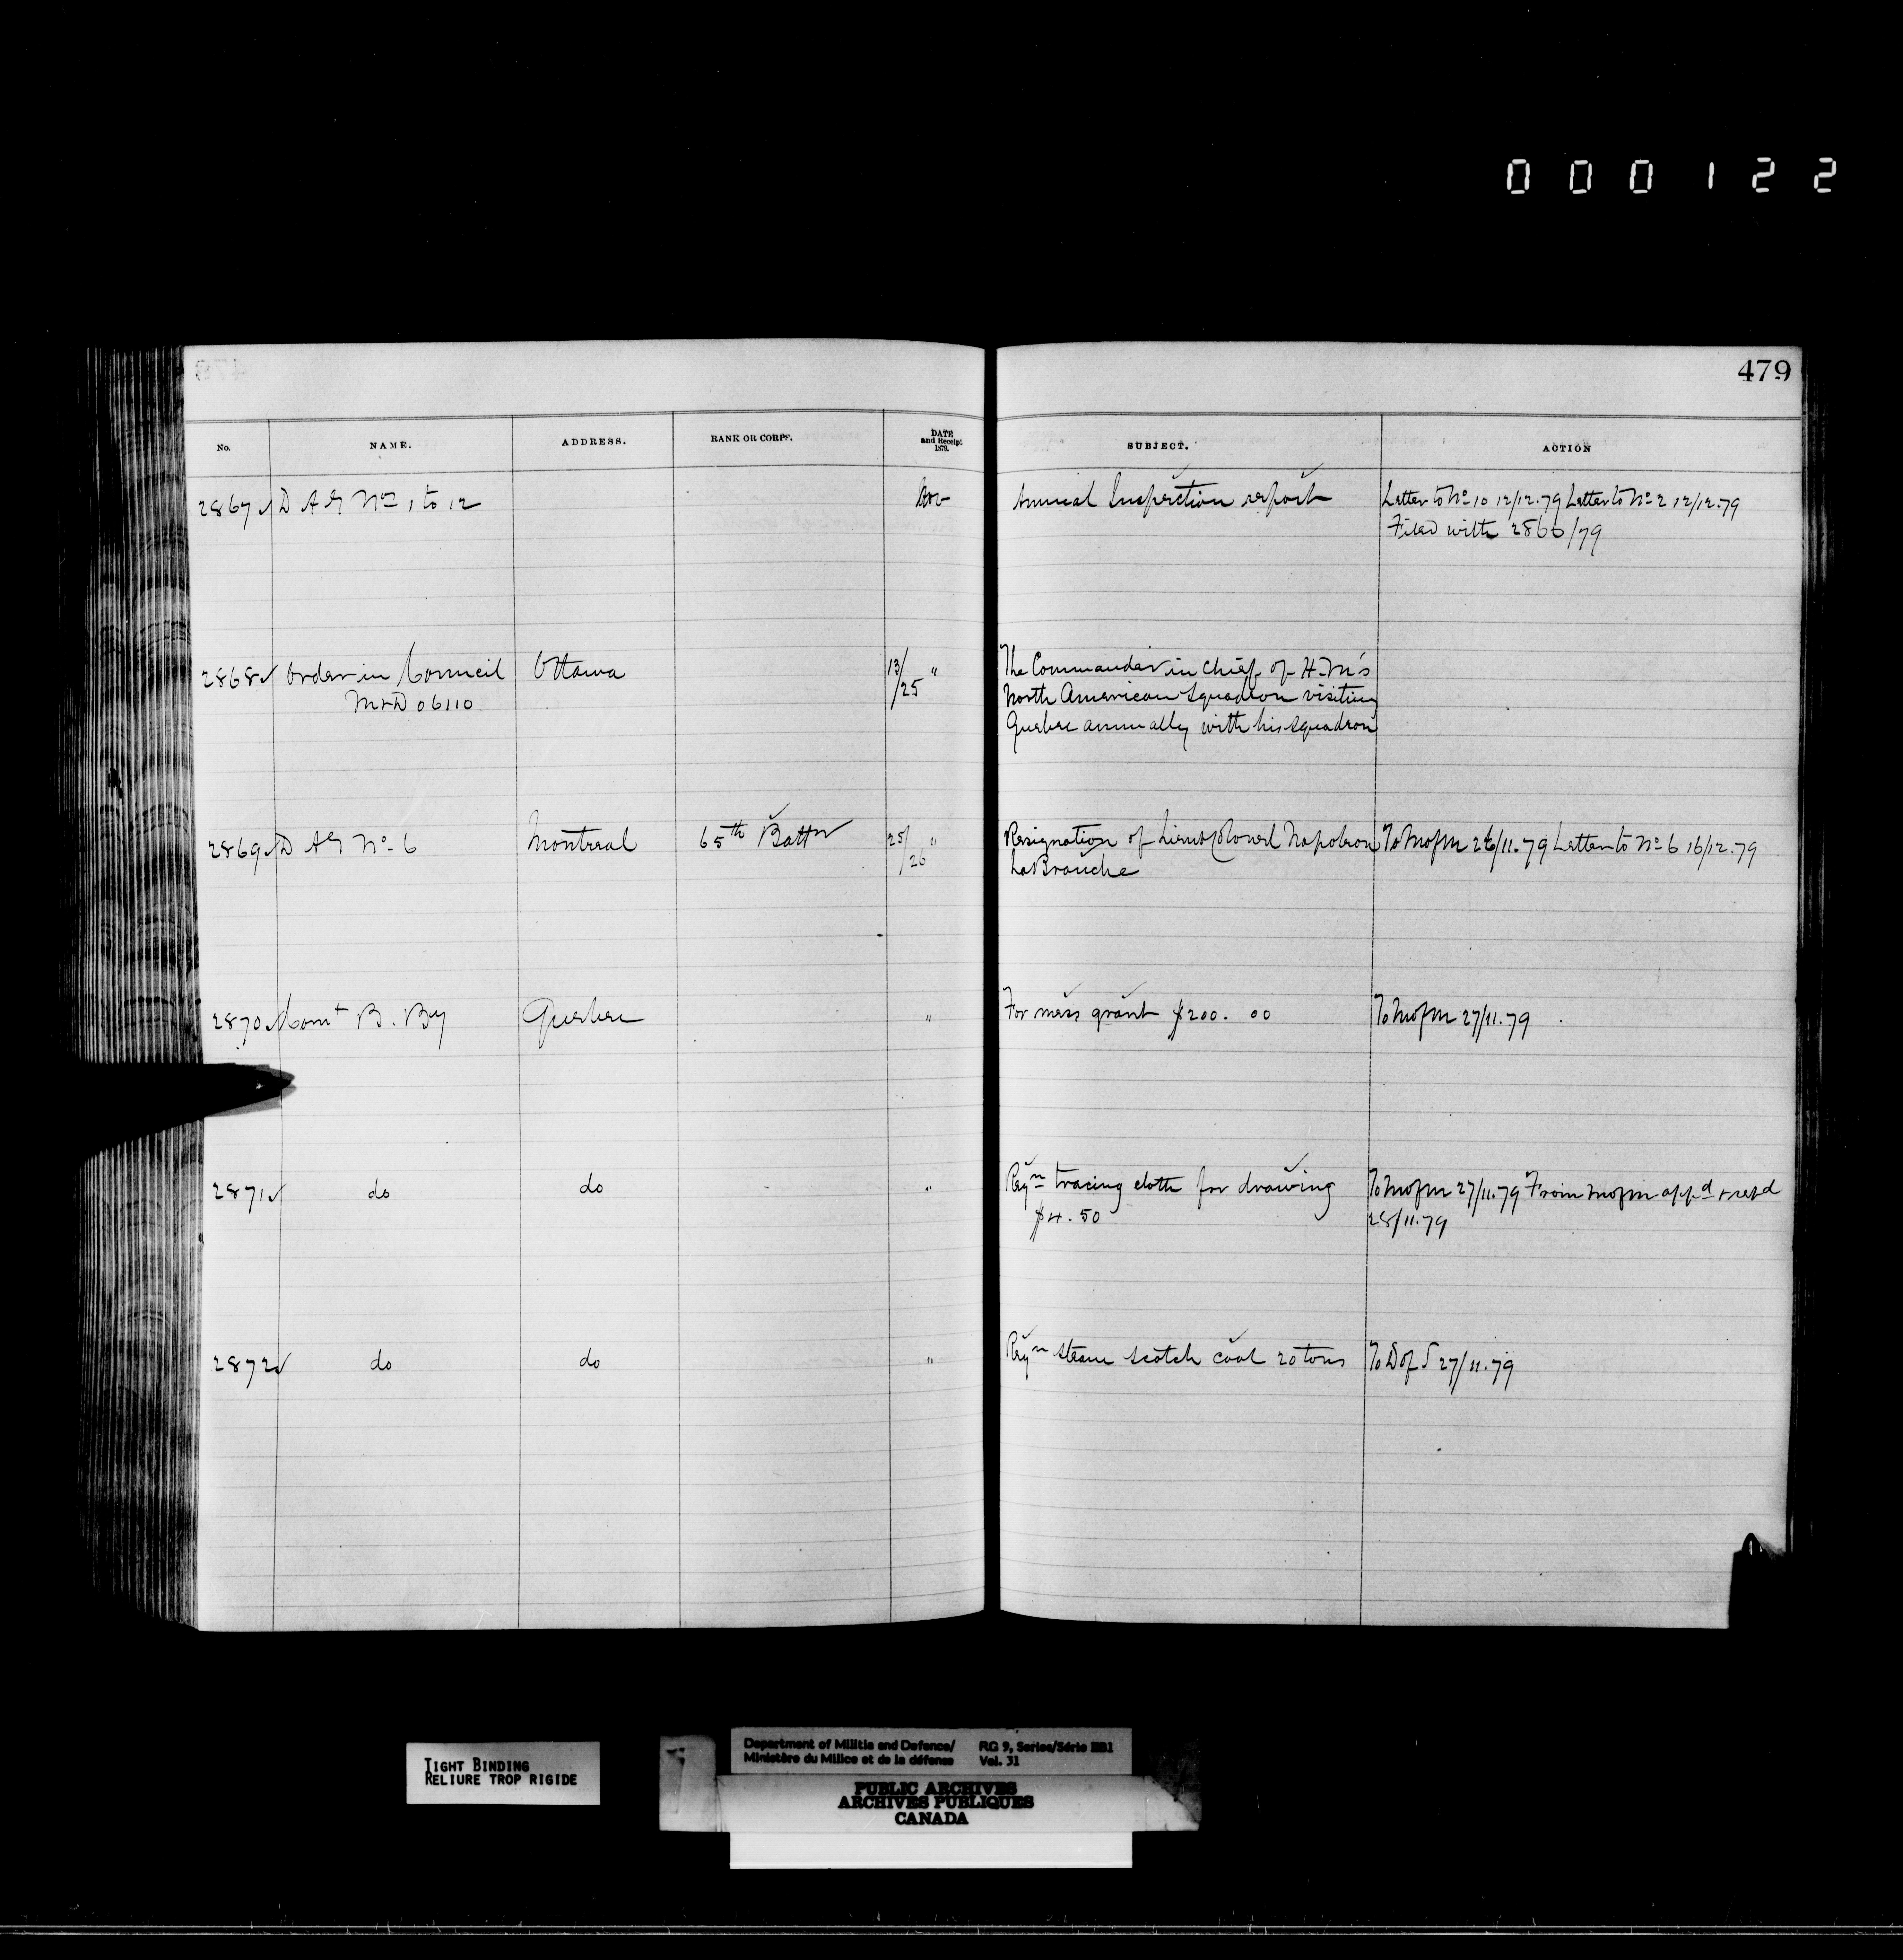 000122
479
No. NAME. ADDRESS. RANK OR CORPS. DATE and Receipt 1879. SUBJECT. ACTION
2867 D A G Nos 1 to 12 Nov Annual Inspection report Letter to No 10 12/12.79 Letter to No 2 12/12.79
Filed with 2866/79
2868 Order in Council Ottawa 13/25 " The Commander in Chief of H.M's
M & D 06110 North American Squadron visiting
Quebec annually with his squadron
2869 D A G No. 6 Montreal 65th Battn 25/26 " Resignation of Lieut Colonel Napoleon To M of M 26/11.79 Letter to No 6 16/12.79
LaBranche
2870 Comt B. By Quebec " For mess grant $200.00 To M of M 27/11.79
2871 do do " Reqn tracing cloth for drawing To M of M 27/11.79 From M of M appd & retd
$4.50 28/11.79
2872 do do " Reqn steam scotch coal 20 tons To D of S 27/11.79
TIGHT BINDING
RELIURE TROP RIGIDE
Department of Militia and Defence/ RG 9, Series/Série IIB1
Ministère du Milice et de la défense Vol. 31
PUBLIC ARCHIVES
ARCHIVES PUBLIQUES
CANADA